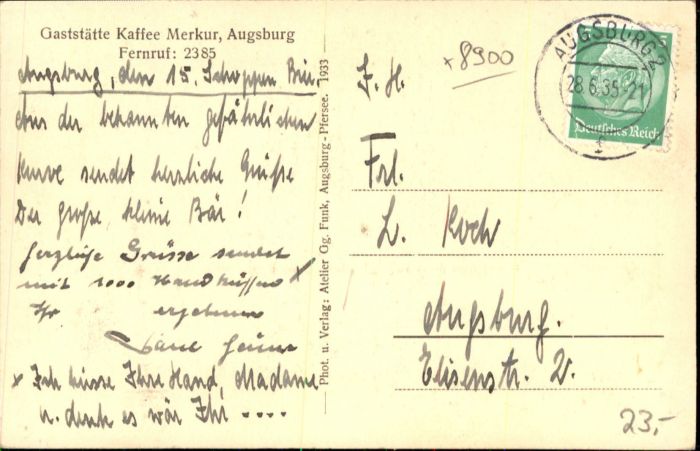 Gaststätte Kaffee Merkur, Augsburg
Fernruf: 2385
Augsburg, den 15. Schoppen Bier.
Aus der bekannten gefährlichen
Kurve sendet herzliche Grüße
Der große, kleine Bär!
Herzliche Grüsse sendet
mit 1000 Handküssen x
Ihr ergebener
x Ich küsse Ihre Hand, Madame
u. denk es wär Ihr ....
Phot. u. Verlag: Atelier Gg. Funk, Augsburg-Pfersee. 1933
x8900
AUGSBURG 2
28.6.35.-21
f
5
Deutsches Reich
F. H.
Frl.
L. Koch
Augsburg.
Elisenstr. 2.
23,-